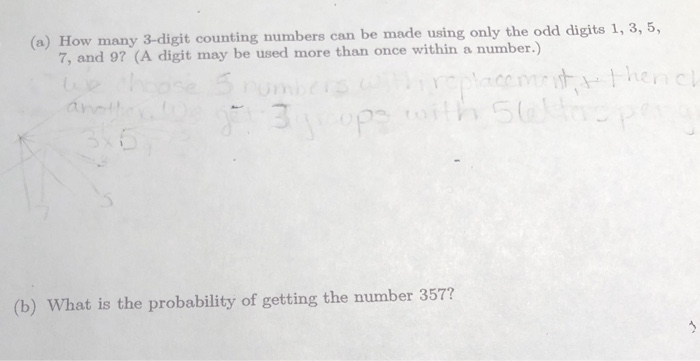 (a) How many 3-digit counting numbers can be made using only the odd digits 1, 3, 5,
7, and 9? (A digit may be used more than once within a number.)
we choose 5 numbers with replacement, + then ch
another. We get 3 groups with 5 letters per
3×5,
5
(b) What is the probability of getting the number 357?